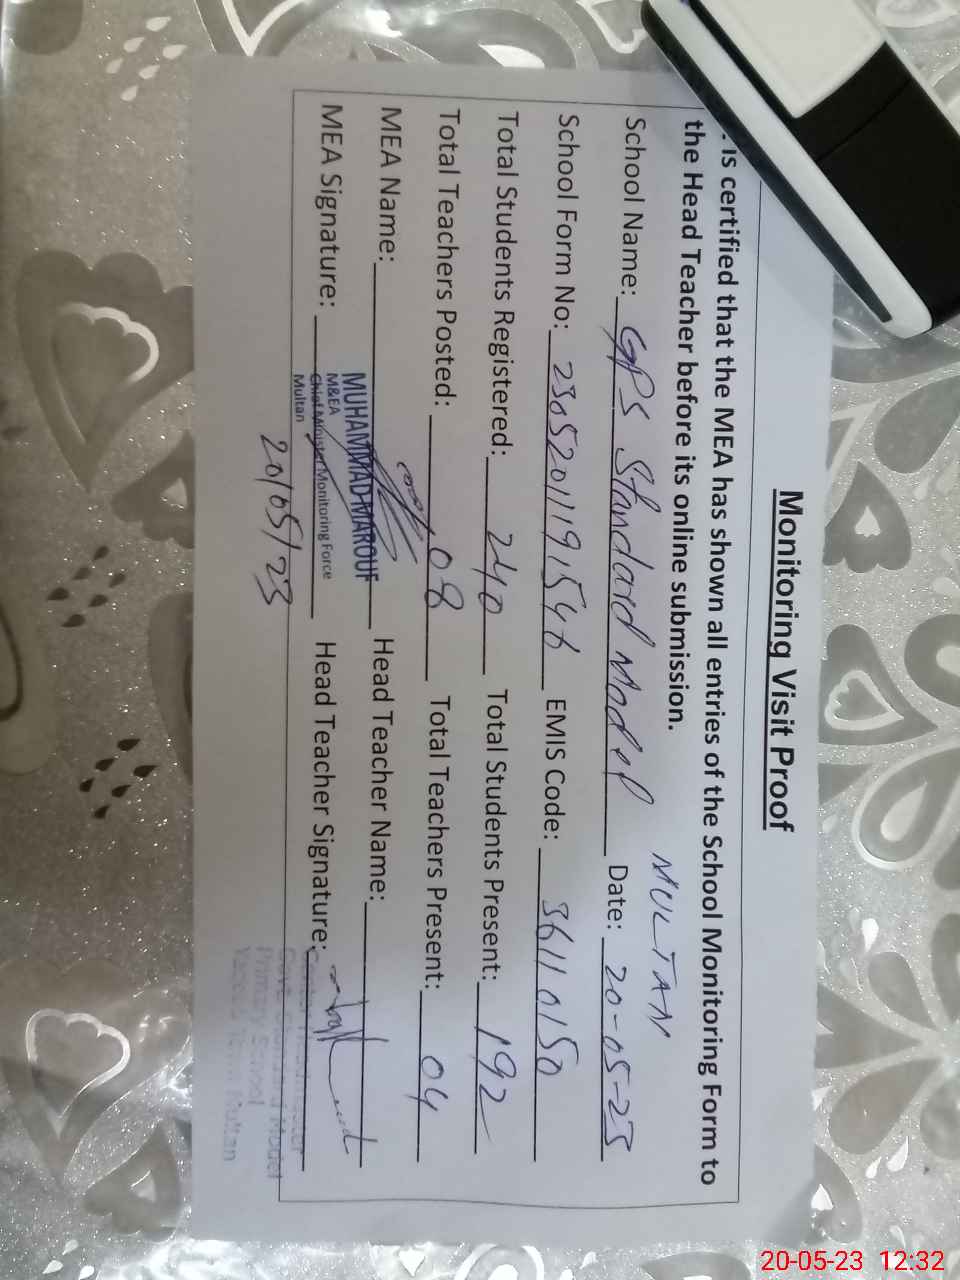 Monitoring Visit Proof
is certified that the MEA has shown all entries of the School Monitoring Form to
the Head Teacher before its online submission.
MULTAN
School Name: GPS Standard Model Date: 20-05-23
School Form No: 2305201191546 EMIS Code: 36110150
Total Students Registered: 240 Total Students Present: 192
Total Teachers Posted: 08 Total Teachers Present: 04
MEA Name: MUHAMMAD MAROUF Head Teacher Name:
MEA Signature: Head Teacher Signature:
M&EA
Chief Minister Monitoring Force
Multan
20/05/23
Primary School
Multan
20-05-23 12:32